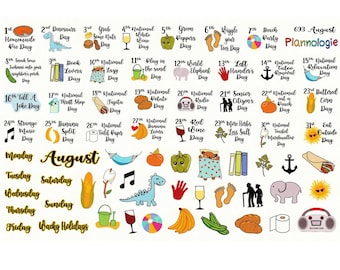 1st
Homemade
Pie Day
2nd Dinosaurs
Day
3rd Grab
Some Nuts
Day
4th National
White Wine
Day
5th Green
Peppers
Day
6th Wiggle
your Toes
Day
7th Beach
Party
Day
693 August
Plannologie
8th Sneak Some
Zucchini onto your
neighbors porch
Day
9th Book
Lovers
Day
10th National
Lazy
Day
11th Play in
the sand
Day
12th World
Elephant
Day
13th Left
Hander's
Day
14th National
Tattoo
Removal
Day
15th National
Relaxation
Day
16th Tell A
Joke Day
17th National
Thrift Shop
Day
18th National
Fajita
Day
19th National
Potato
Day
20th National
Radio
Day
21st Senior
Citizens
Day
22nd National
Tooth Fairy
Day
23rd Buttered
Corn
Day
24th Strange
Music
Day
25th Banana
Split
Day
26th National
Toilet Paper
Day
27th National
Banana Lovers
Day
28th Red
Wine
Day
29th More Herbs
Less Salt
Day
30th National
Toasted
Marshmallow
Day
31st Eat
Outside
Day
Monday
Tuesday
Wednesday
Thursday
Friday
August
Saturday
Sunday
Wacky Holidays